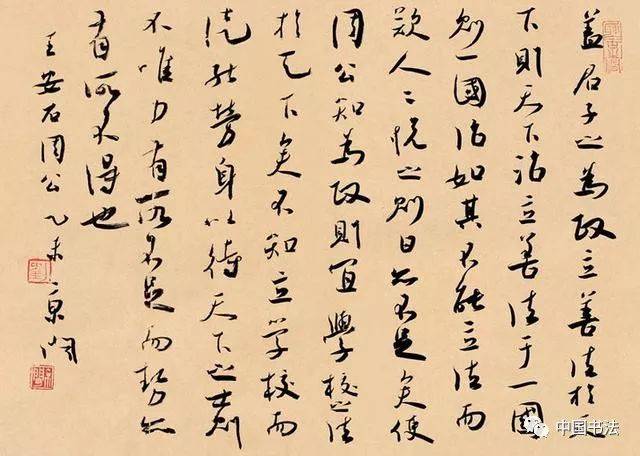 盖君子之为政立善法於天
下则天下治立善法于一國
则一國治如其不能立法而
欲人人悦之则日亦不足矣使
周公知為政则宜學校之法
於天下矣不知立学校而
徒能劳身以待天下之士则
不唯力有所不足而势亦
有所不得也
王安石周公乙未京闽
中国书法